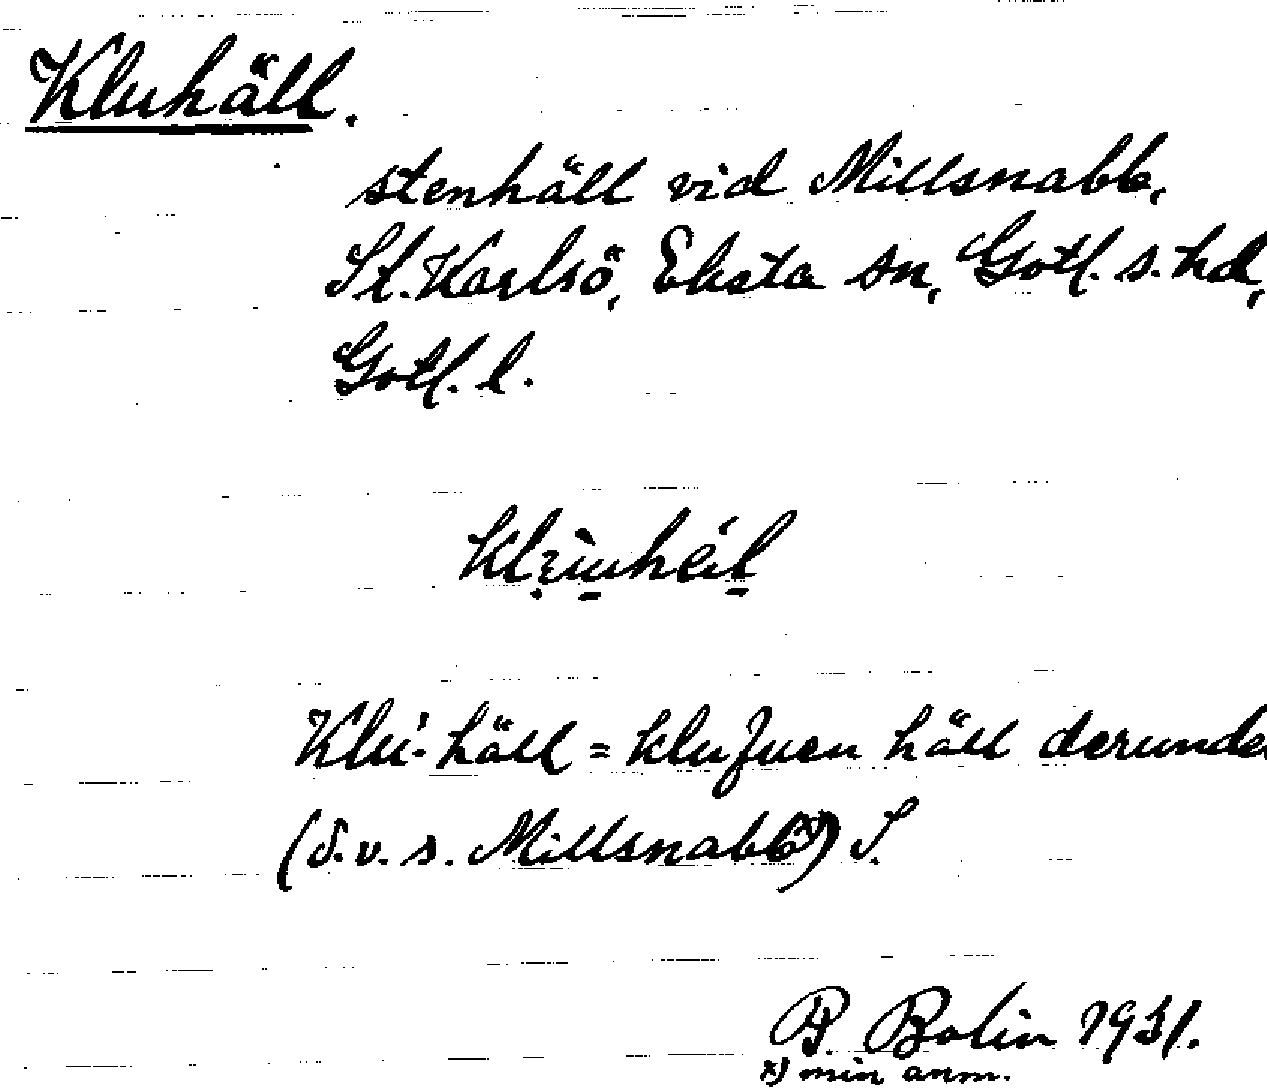 Kluhäll.
stenhäll vid Millsnabb,
St. Karlsö, Eksta sn, Gotl. s. hd,
Gotl. l.
Klu-häll = klufven häll derunde
(d.v.s. Millsnabb x)) S.
P. Bolin 1931.
x) min anm.